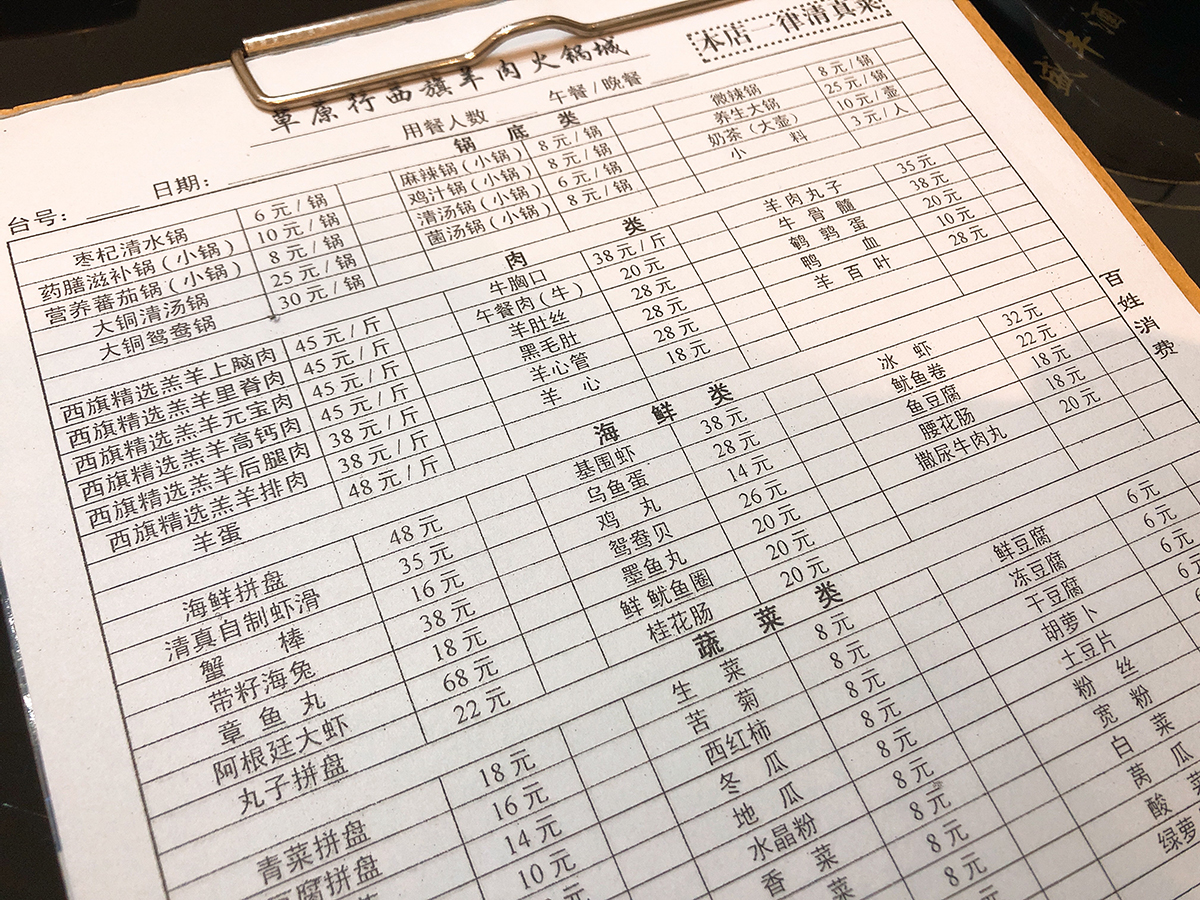 本店一律清真菜
草原行西旗羊肉火锅城
用餐人数 午餐/晚餐
台号: 日期:
锅底类
枣杞清水锅 6元/锅
药膳滋补锅(小锅) 10元/锅
营养蕃茄锅(小锅) 8元/锅
大铜清汤锅 25元/锅
大铜鸳鸯锅 30元/锅
麻辣锅(小锅) 8元/锅
鸡汁锅(小锅) 8元/锅
清汤锅(小锅) 6元/锅
菌汤锅(小锅) 8元/锅
微辣锅 8元/锅
养生大锅 25元/锅
奶茶(大壶) 10元/壶
小料 3元/人
肉类
西旗精选羔羊上脑肉 45元/斤
西旗精选羔羊里脊肉 45元/斤
西旗精选羔羊元宝肉 45元/斤
西旗精选羔羊高钙肉 45元/斤
西旗精选羔羊后腿肉 38元/斤
西旗精选羔羊排肉 38元/斤
羊蛋 48元/斤
牛胸口 38元/斤
午餐肉(牛) 20元
羊肚丝 28元
黑毛肚 28元
羊心管 28元
羊心 18元
羊肉丸子 35元
牛骨髓 38元
鹌鹑蛋 20元
鸭血 10元
羊百叶 28元
百姓消费
海鲜类
海鲜拼盘 48元
清真自制虾滑 35元
蟹棒 16元
带籽海兔 38元
章鱼丸 18元
阿根廷大虾 68元
丸子拼盘 22元
基围虾 38元
乌鱼蛋 28元
鸡丸 14元
鸳鸯贝 26元
墨鱼丸 20元
鲜鱿鱼圈 20元
桂花肠 20元
冰虾 32元
鱿鱼卷 22元
鱼豆腐 18元
腰花肠 18元
撒尿牛肉丸 20元
蔬菜类
青菜拼盘 18元
腐拼盘 16元
14元
10元
生菜 8元
苦菊 8元
西红柿 8元
冬瓜 8元
地瓜 8元
水晶粉 8元
香菜 8元
菜 8元
鲜豆腐 6元
冻豆腐 6元
干豆腐 6元
胡萝卜 6元
土豆片
粉丝
宽粉
白菜
莴瓜
酸菜
绿萝